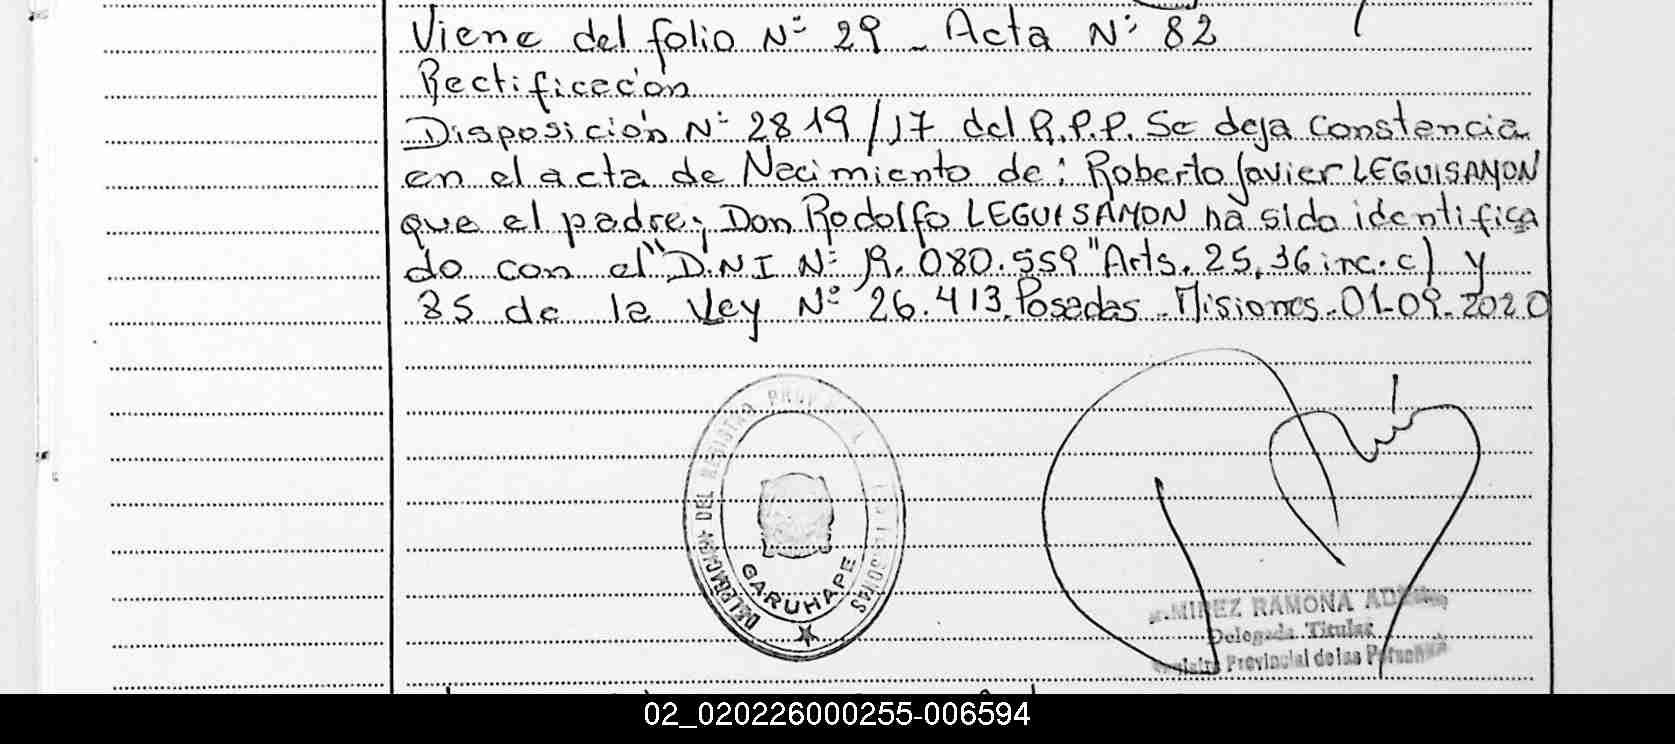 Viene del folio N° 29 - Acta N° 82
Rectificación
Disposición N° 2819/17 del R.P.P. Se deja constancia
en el acta de Nacimiento de: Roberto Javier LEGUISAMON
que el padre; Don Rodolfo LEGUISAMON ha sido identifica
do con el "D.N.I N° 19.080.559" Arts. 25, 36 inc. c) y
85 de la Ley N° 26.413. Posadas - Misiones - 01-09-2020
DELEGACION DEL REGISTRO PROV
PERSONAS
GARUHAPE
RAMONA
Delegada Titular
Provincial de las Personas
02_020226000255-006594